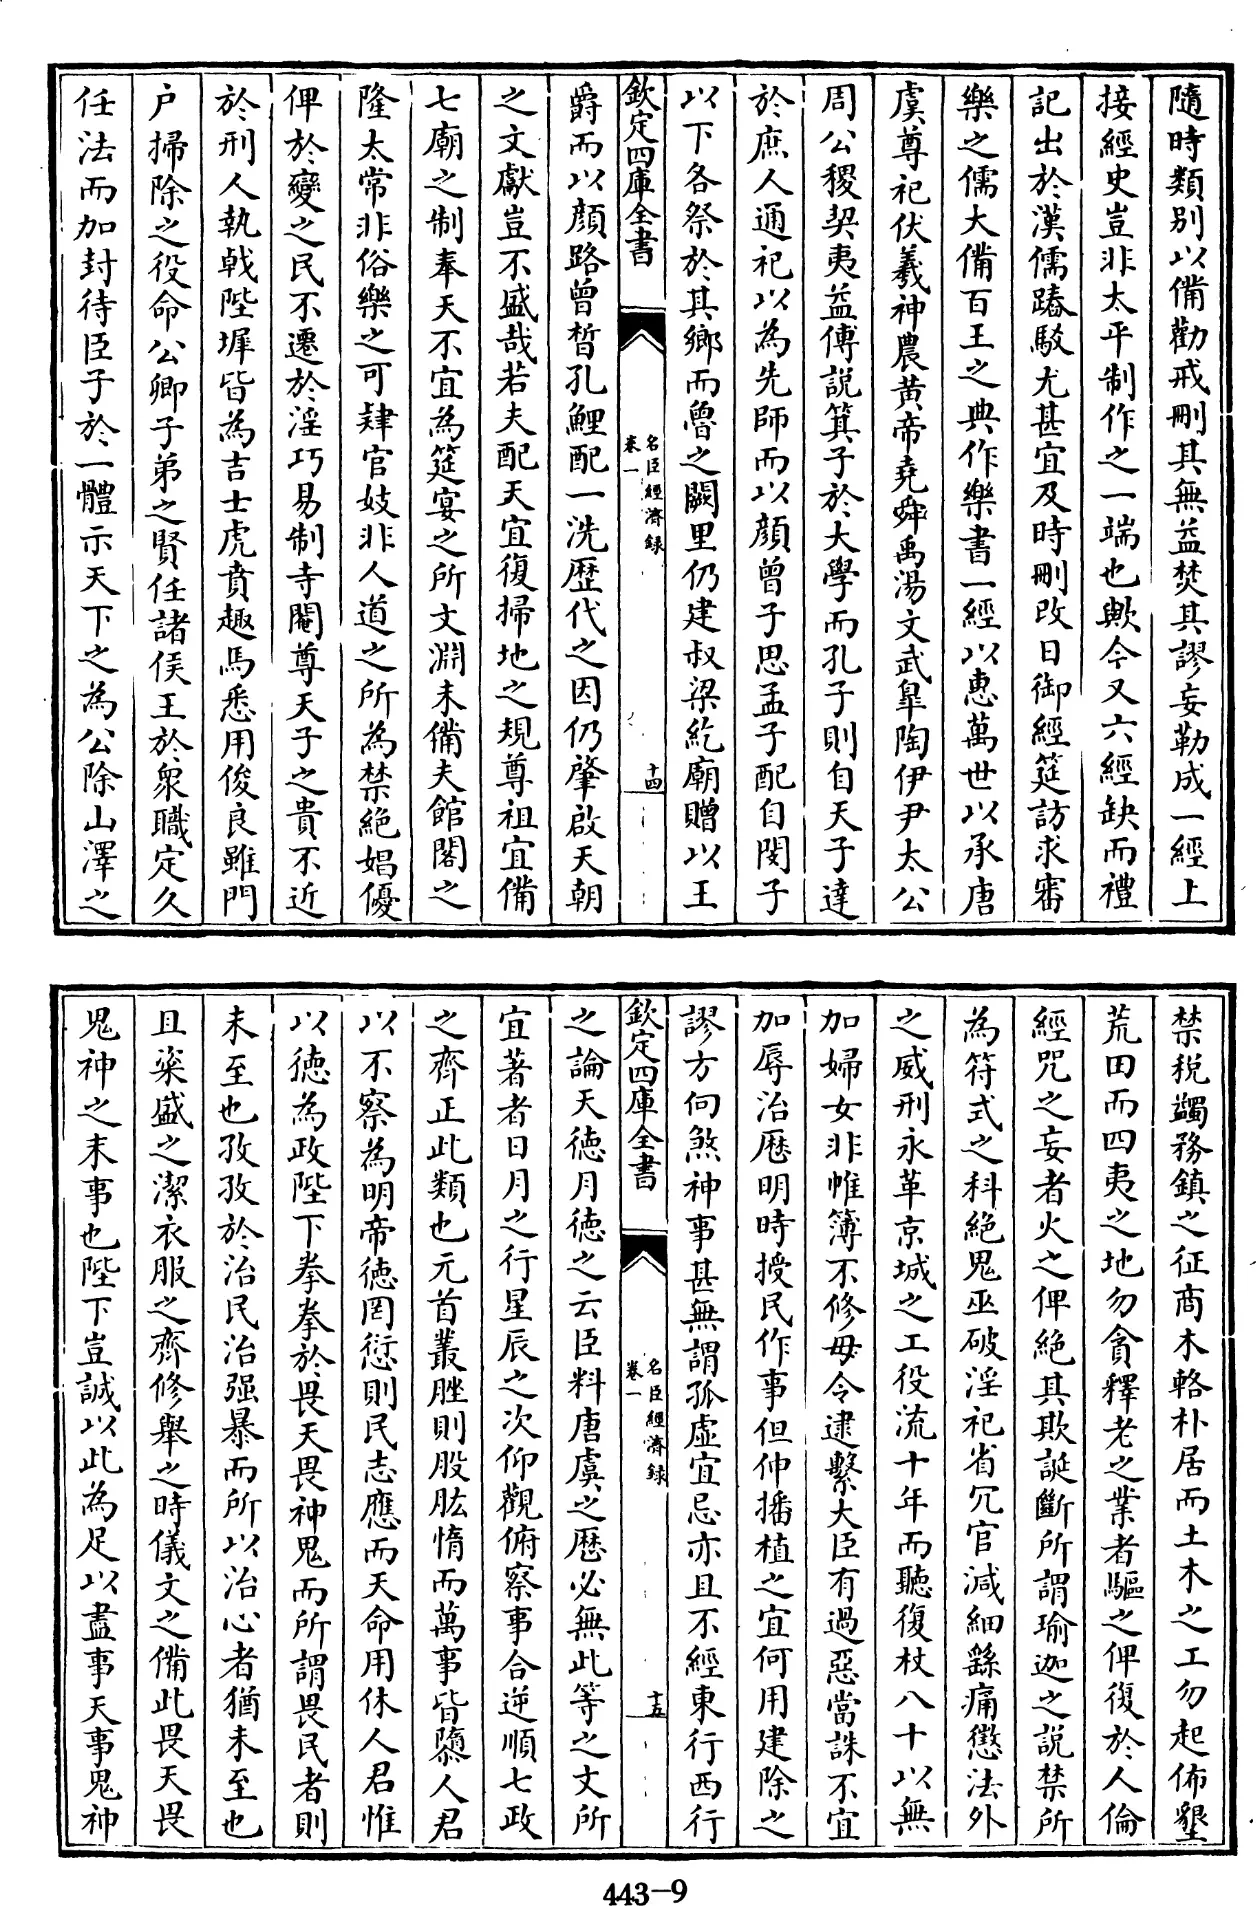 隨時類别以備勸戒刪其無益焚其謬妄勒成一經上
接經史豈非太平制作之一端也歟今又六經缺而禮
記出於漢儒踳駁尤甚宜及時刪改日御經筵訪求審
樂之儒大備百王之典作樂書一經以惠萬世以承唐
虞尊祀伏羲神農黄帝堯舜禹湯文武臯陶伊尹太公
周公稷契夷益傅説箕子於大學而孔子則自天子達
於庶人通祀以為先師而以顔曾子思孟子配自閔子
以下各祭於其鄉而魯之闕里仍建叔梁紇廟贈以王
欽定四庫全書
名臣經濟録
卷一
十四
爵而以顔路曾晳孔鯉配一洗歴代之因仍肇啟天朝
之文獻豈不盛哉若夫配天宜復掃地之規尊祖宜備
七廟之制奉天不宜為筵宴之所文淵未備夫館閣之
隆太常非俗樂之可肄官妓非人道之所為禁絶娼優
俾於變之民不遷於淫巧易制寺閹尊天子之貴不近
於刑人執戟陛墀皆為吉士虎賁趣馬悉用俊良雖門
户掃除之役命公卿子弟之賢任諸侯王於衆職定久
任法而加封待臣子於一體示天下之為公除山澤之
禁税蠲務鎮之征商木輅朴居而土木之工勿起佈墾
荒田而四夷之地勿貪釋老之業者驅之俾復於人倫
經咒之妄者火之俾絶其欺誕斷所謂瑜迦之説禁所
為符式之科絶鬼巫破淫祀省冗官減細縣痛懲法外
之威刑永革京城之工役流十年而聽復杖八十以無
加婦女非帷簿不修毋令逮繫大臣有過惡當誅不宜
加辱治厯明時授民作事但伸播植之宜何用建除之
謬方向煞神事甚無謂孤虚宜忌亦且不經東行西行
欽定四庫全書
名臣經濟録
卷一
十五
之論天徳月徳之云臣料唐虞之厯必無此等之文所
宜著者日月之行星辰之次仰觀俯察事合逆順七政
之齊正此類也元首叢脞則股肱惰而萬事皆隳人君
以不察為明帝徳罔愆則民志應而天命用休人君惟
以徳為政陛下拳拳於畏天畏神鬼而所謂畏民者則
未至也孜孜於治民治强暴而所以治心者猶未至也
且粢盛之潔衣服之齊修舉之時儀文之備此畏天畏
鬼神之末事也陛下豈誠以此為足以盡事天事鬼神
443-9